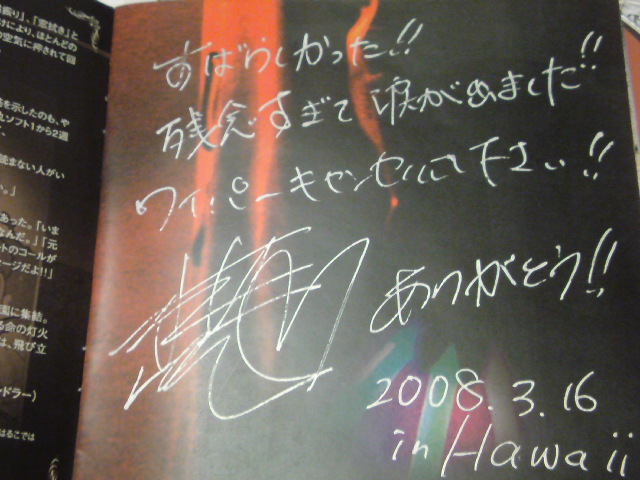 すばらしかった!!
残念すぎて涙がでました!!
ワイパーキャンセルして下さい!!
ありがとう!!
2008.3.16
in Hawaii
振り」、「窓拭き」と
けにより、ほとんどの
の空気に押されて回
を示したのも、や
ソフト1から2週
読まない人がい
い。」
あった。「いま
なんだ。」「元
ットのコールが
ージだよ!!」
国に集結。
る命の灯火
は、飛び立
ンドラー)
はるこでは